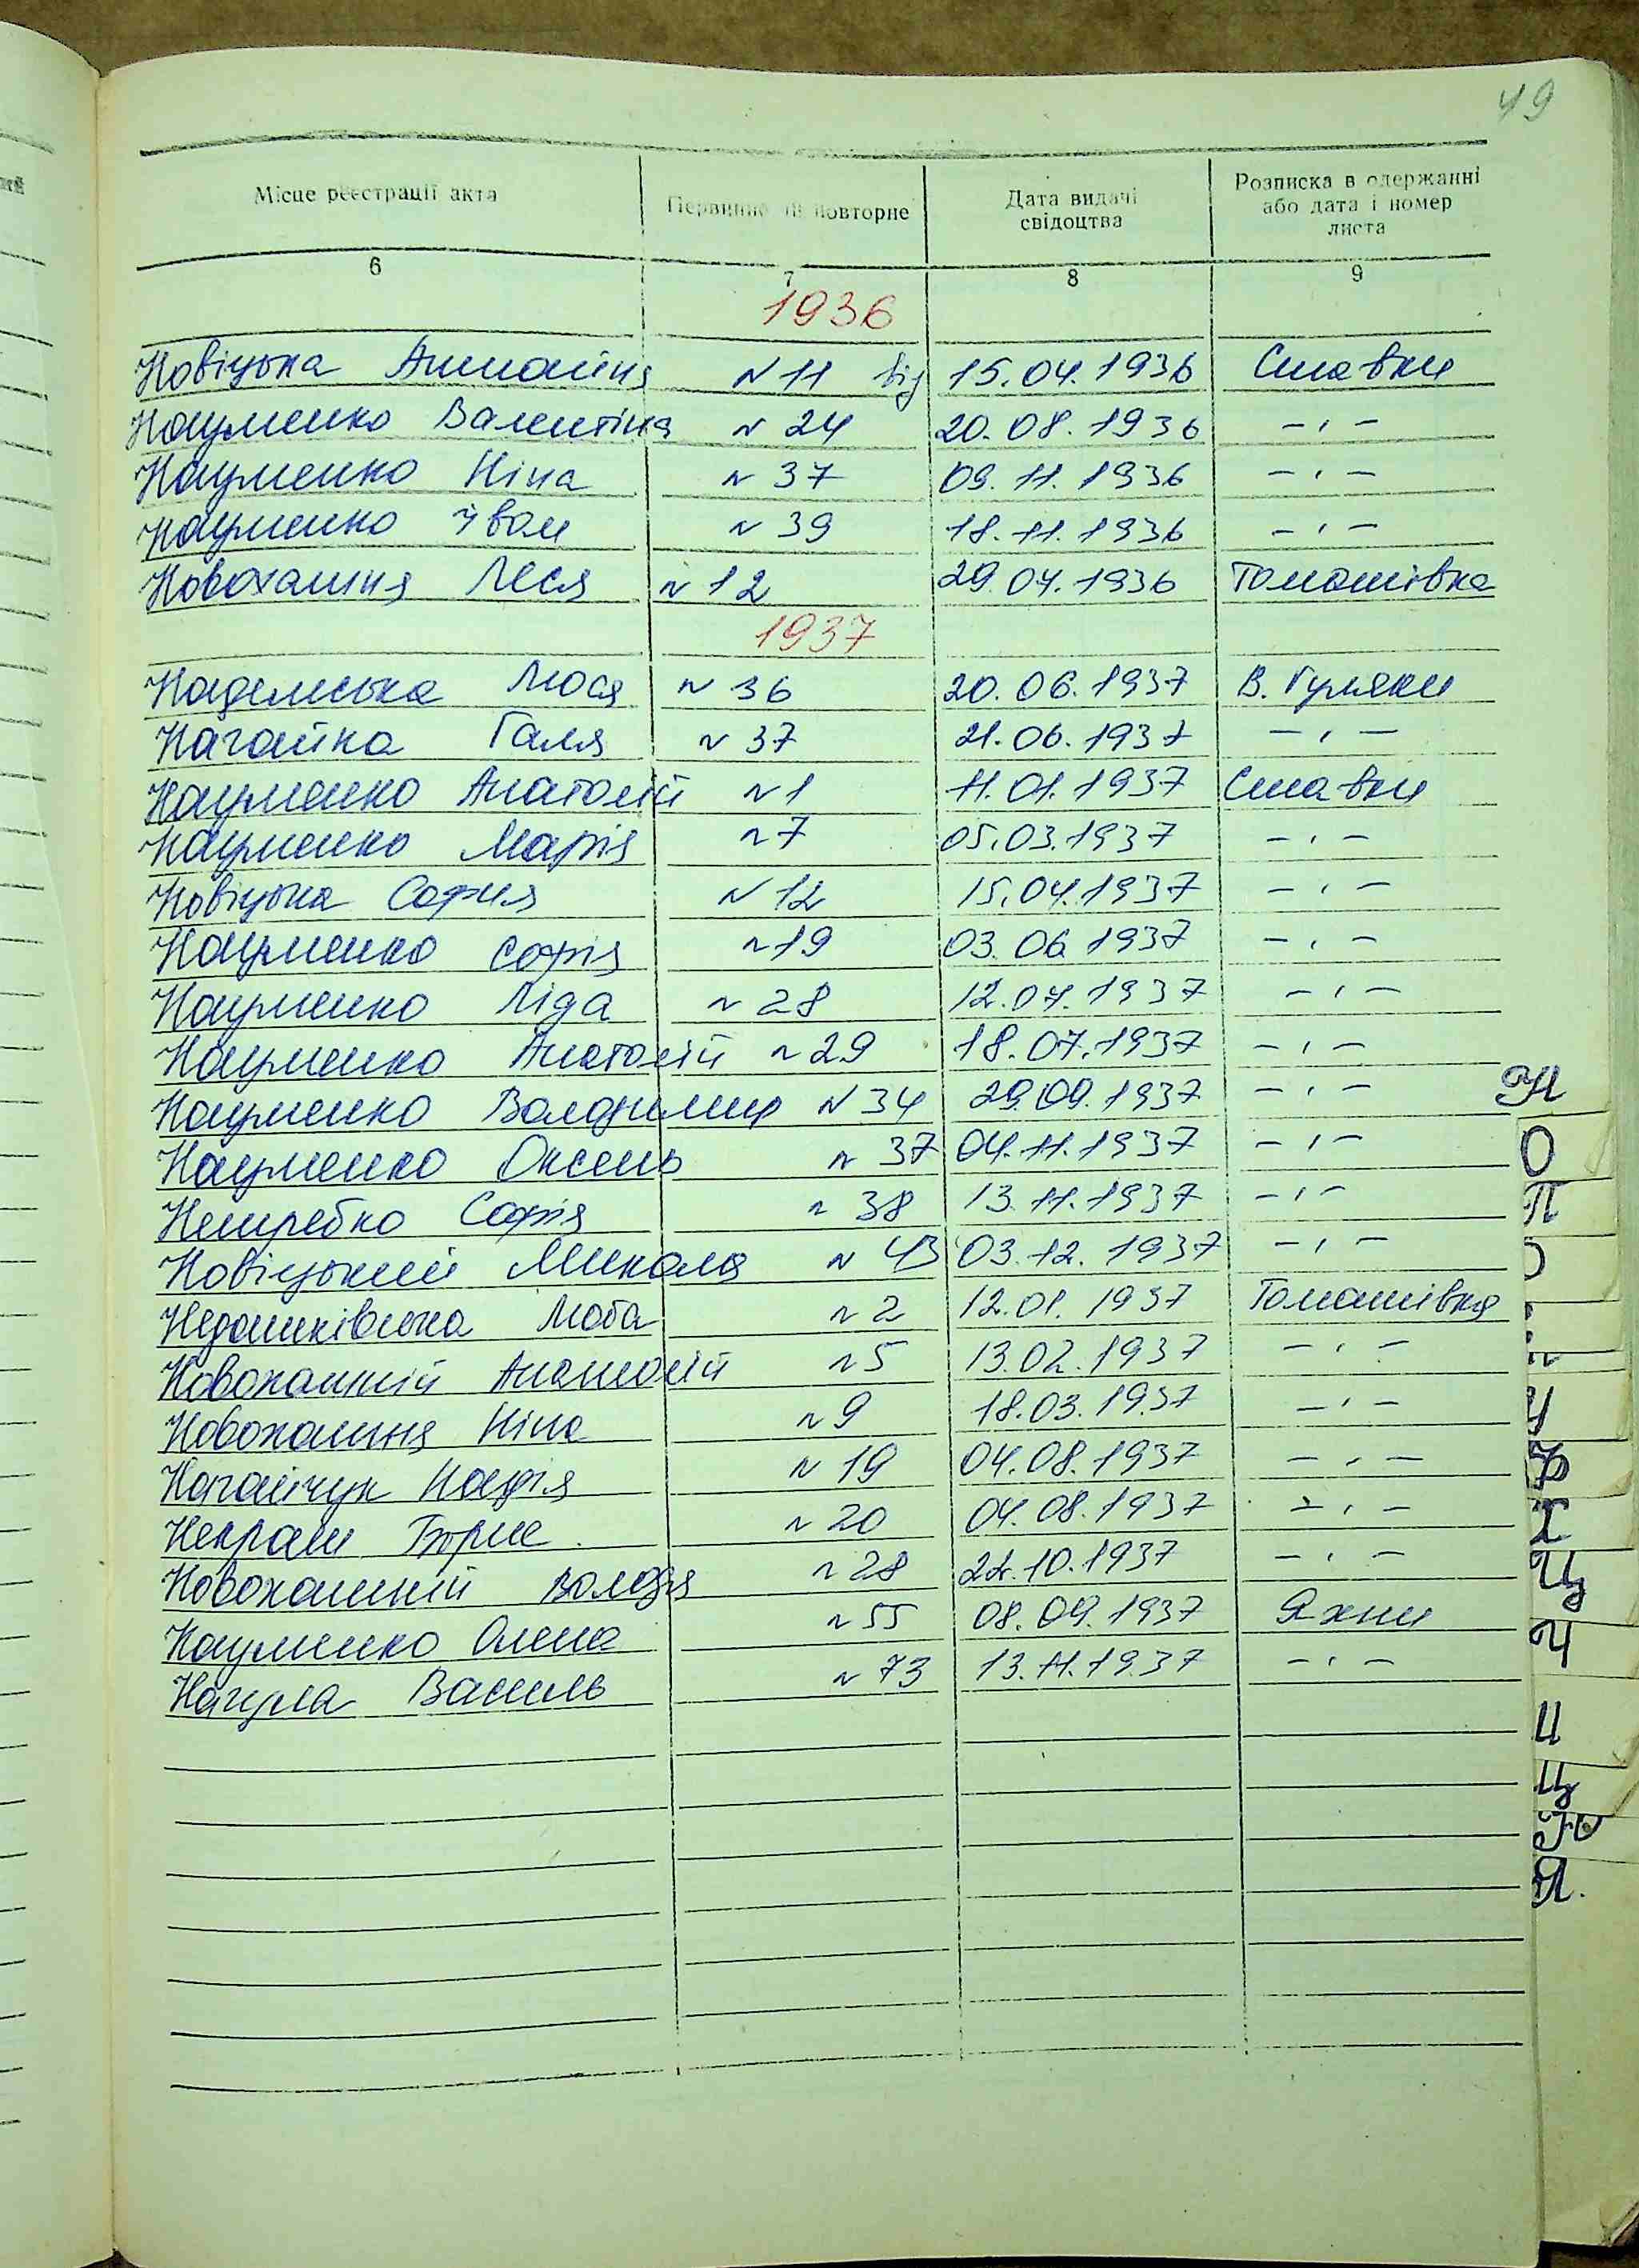 49
Місце реєстрації акта Первинне чи повторне Дата видачі свідоцтва Розписка в одержанні або дата і номер листа
6 7 8 9
1936
Новіцька Антоніна N 11 від 15.04.1936 Ставки
Науменко Валентіна N 24 20.08.1936 - ' -
Науменко Ніна N 37 09.11.1936 - ' -
Науменко Іван N 39 18.11.1936 - ' -
Новохатня Леся N 12 29.04.1936 Томашівка
1937
Надемська Люся N 36 20.06.1937 В. Гуляки
Нагайна Галя N 37 21.06.1937 - ' -
Науменко Анатолій N 1 11.01.1937 Ставки
Науменко Марія N 7 05.03.1937 - ' -
Новіцька София N 12 15.04.1937 - ' -
Науменко Софія N 19 03.06.1937 - ' -
Науменко Ліда N 28 12.07.1937 - ' -
Науменко Анатолій N 29 18.07.1937 - ' -
Науменко Володимир N 34 29.09.1937 - ' -
Науменко Оксень N 37 04.11.1937 - ' -
Нештребко Софія N 38 13.11.1937 - ' -
Новіцький Микола N 43 03.12.1937 - ' -
Недашківська Люба N 2 12.01.1937 Томашівка
Новохатній Анатолій N 5 13.02.1937 - ' -
Новохатня Ніна N 9 18.03.1937 - ' -
Нагайчук Надія N 19 04.08.1937 - ' -
Некраш Борис N 20 04.08.1937 - ' -
Новохатній Володя N 28 22.10.1937 - ' -
Науменко Олена N 55 08.09.1937 Яхни
Нагула Василь N 73 13.11.1937 - ' -
Н
О
П
У
Ф
Х
Ц
Ч
Ю
Я.